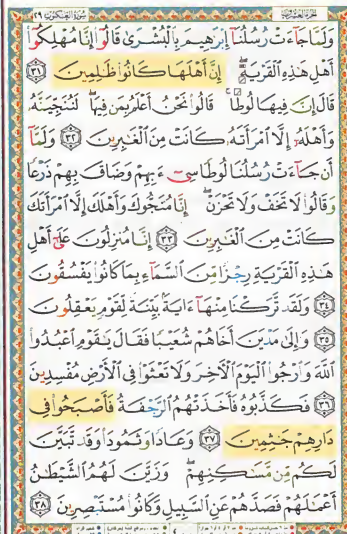 سورة العنكبوت ٢٩
وَلَمَّا جَآءَتْ رُسُلُنَآ إِبْرَٰهِيمَ بِٱلْبُشْرَىٰ قَالُوٓا۟ إِنَّا مُهْلِكُوٓا۟
أَهْلِ هَٰذِهِ ٱلْقَرْيَةِ ۖ إِنَّ أَهْلَهَا كَانُوا۟ ظَٰلِمِينَ ٣١
قَالَ إِنَّ فِيهَا لُوطًا ۚ قَالُوا۟ نَحْنُ أَعْلَمُ بِمَن فِيهَا ۖ لَنُنَجِّيَنَّهُۥ
وَأَهْلَهُۥٓ إِلَّا ٱمْرَأَتَهُۥ كَانَتْ مِنَ ٱلْغَٰبِرِينَ ٣٢ وَلَمَّآ
أَن جَآءَتْ رُسُلُنَا لُوطًا سِىٓءَ بِهِمْ وَضَاقَ بِهِمْ ذَرْعًا
وَقَالُوا۟ لَا تَخَفْ وَلَا تَحْزَنْ ۖ إِنَّا مُنَجُّوكَ وَأَهْلَكَ إِلَّا ٱمْرَأَتَكَ
كَانَتْ مِنَ ٱلْغَٰبِرِينَ ٣٣ إِنَّا مُنزِلُونَ عَلَىٰٓ أَهْلِ
هَٰذِهِ ٱلْقَرْيَةِ رِجْزًا مِّنَ ٱلسَّمَآءِ بِمَا كَانُوا۟ يَفْسُقُونَ
٣٤ وَلَقَد تَّرَكْنَا مِنْهَآ ءَايَةًۢ بَيِّنَةً لِّقَوْمٍ يَعْقِلُونَ
٣٥ وَإِلَىٰ مَدْيَنَ أَخَاهُمْ شُعَيْبًا فَقَالَ يَٰقَوْمِ ٱعْبُدُوا۟
ٱللَّهَ وَٱرْجُوا۟ ٱلْيَوْمَ ٱلْءَاخِرَ وَلَا تَعْثَوْا۟ فِى ٱلْأَرْضِ مُفْسِدِينَ
٣٦ فَكَذَّبُوهُ فَأَخَذَتْهُمُ ٱلرَّجْفَةُ فَأَصْبَحُوا۟ فِى
دَارِهِمْ جَٰثِمِينَ ٣٧ وَعَادًا وَثَمُودَا۟ وَقَد تَّبَيَّنَ
لَكُم مِّن مَّسَٰكِنِهِمْ ۖ وَزَيَّنَ لَهُمُ ٱلشَّيْطَٰنُ
أَعْمَٰلَهُمْ فَصَدَّهُمْ عَنِ ٱلسَّبِيلِ وَكَانُوا۟ مُسْتَبْصِرِينَ ٣٨